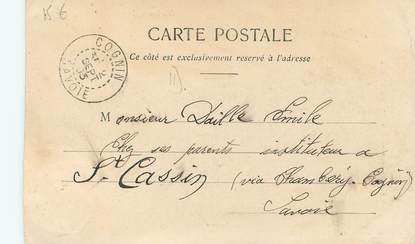 15 €
CARTE POSTALE
Ce côté est exclusivement reservé à l'adresse
COGNIN
SAVOIE
Monsieur Daille Emile
Chez ses parents instituteur a
St Cassin (via Chambery-Cognin)
Savoie